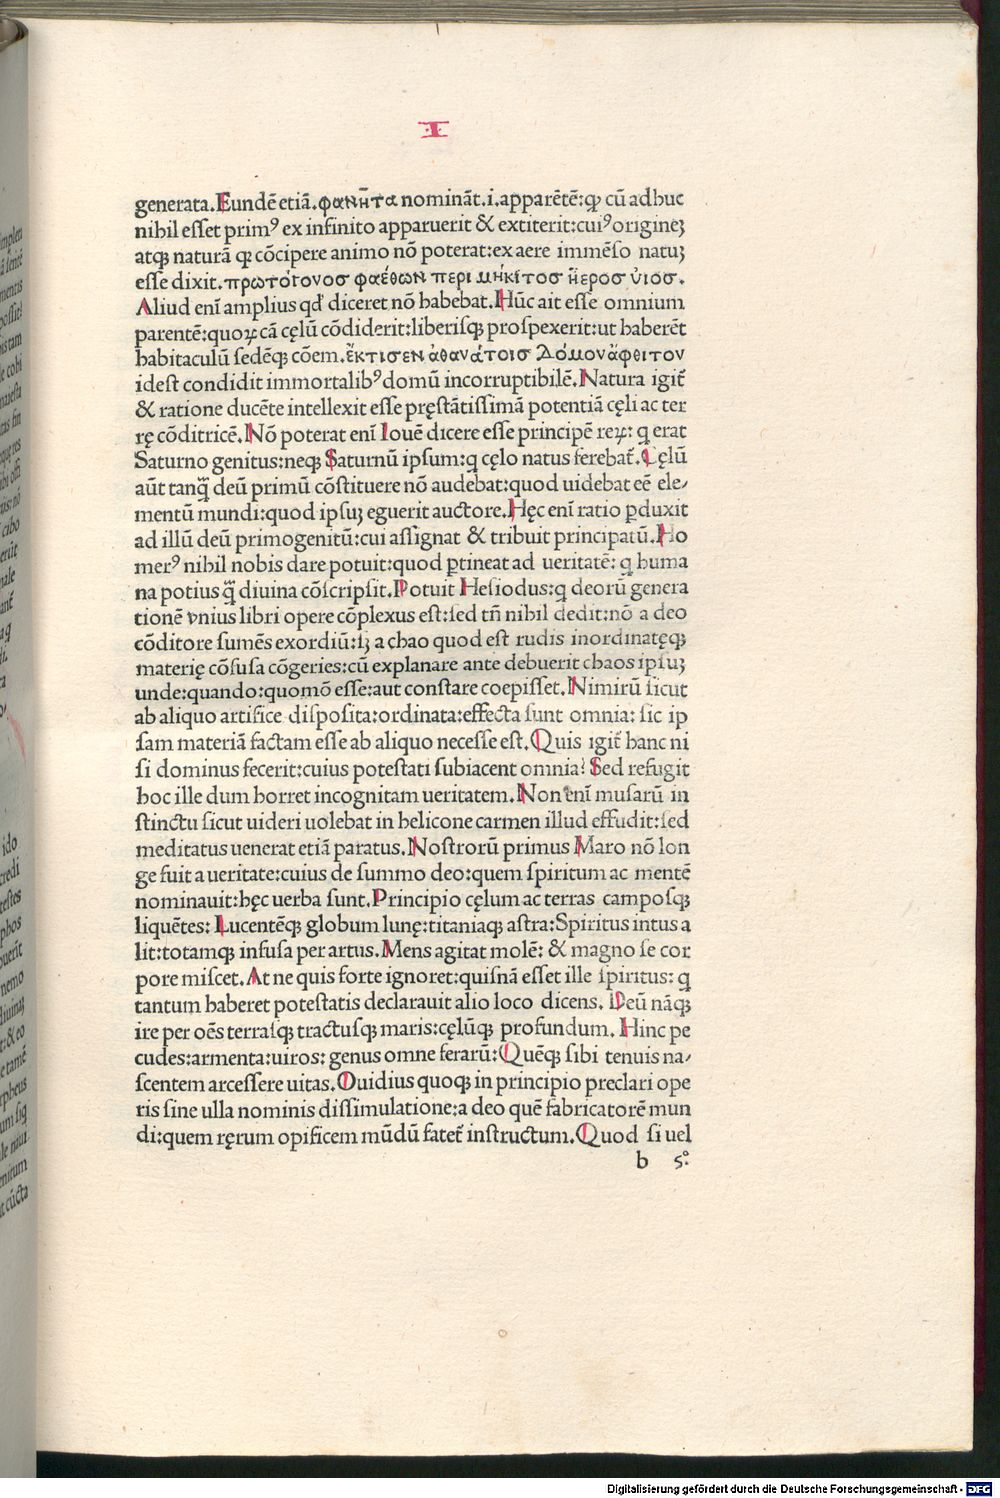 ·I·
generata.Eundē etiā.φανη̄τα nominãt.i.apparētē:ꝙ cū adhuc
nihil esset primꝰ ex infinito apparuerit & extiterit:cuiꝰ origineꝫ
atqꝫ naturā ꝙ cōcipere animo nō poterat:ex aere immēso natuꝫ
esse dixit.πρωτόγονοσ φαέθων περι μήκιτοσ ἥεροσ ὑιοσ.
Aliud enī amplius qd̛ diceret nō habebat.Hūc ait esse omnium
parentē:quoꝝ cā cęlū cōdiderit:liberisqꝫ prospexerit:ut haberēt
habitaculū sedēqꝫ cōem.ἔκτισεν ἀθανάτοισ δόμον ἄφθιτον
idest condidit immortalibꝰ domū incorruptibilē.Natura igit̃
& ratione ducēte intellexit esse pręstātissimā potentiā cęli ac ter
rę cōditricē.Nō poterat enī Iouē dicere esse principē reꝝ: q erat
Saturno genitus:neqꝫ Saturnū ipsum:q cęlo natus ferebat̃.Cęlū
aūt tanq̃ deū primū cōstituere nō audebat:quod uidebat eē ele⸗
mentū mundi:quod ipsuꝫ eguerit auctore.Hęc enī ratio ꝑduxit
ad illū deū primogenitū:cui assignat & tribuit principatū.Ho
merꝰ nihil nobis dare potuit:quod ꝑtineat ad ueritatē: q huma
na potius q̃ diuina cōscripsit.Potuit Hesiodus:q deorū genera
tionē vnius libri opere cōplexus est:sed tñ nihil dedit:nō a deo
cōditore sumēs exordiū:sꝫ a chao quod est rudis inordinatęqꝫ
materię cōfusa cōgeries:cū explanare ante debuerit chaos ipsuꝫ
unde:quando:quomō esse:aut constare coepisset.Nimirū sicut
ab aliquo artifice disposita:ordinata:effecta sunt omnia: sic ip
sam materiā factam esse ab aliquo necesse est.Quis igit̃ hanc ni
si dominus fecerit:cuius potestati subiacent omnia? Sed refugit
hoc ille dum horret incognitam ueritatem.Non enī musarū in
stinctu sicut uideri uolebat in helicone carmen illud effudit:sed
meditatus uenerat etiā paratus.Nostrorū primus Maro nō lon
ge fuit a ueritate:cuius de summo deo:quem spiritum ac mentē
nominauit:hęc uerba sunt.Principio cęlum ac terras camposqꝫ
liquētes: Lucentēqꝫ globum lunę:titaniaqꝫ astra:Spiritus intus a
lit:totamqꝫ infusa per artus.Mens agitat molē: & magno se cor
pore miscet.At ne quis forte ignoret:quisnā esset ille spiritus: q
tantum haberet potestatis declarauit alio loco dicens. Deū nāqꝫ
ire per oēs terrasqꝫ tractusqꝫ maris:cęlūqꝫ profundum. Hinc pe
cudes:armenta:uiros: genus omne ferarū:Quēqꝫ sibi tenuis na⸗
scentem arcessere uitas.Ouidius quoqꝫ in principio preclari ope
ris sine ulla nominis dissimulatione:a deo quē fabricatorē mun
di:quem ręrum opificem mūdū fatet̃ instructum.Quod si uel
b 5º
Digitalisierung gefördert durch die Deutsche Forschungsgemeinschaft - DFG